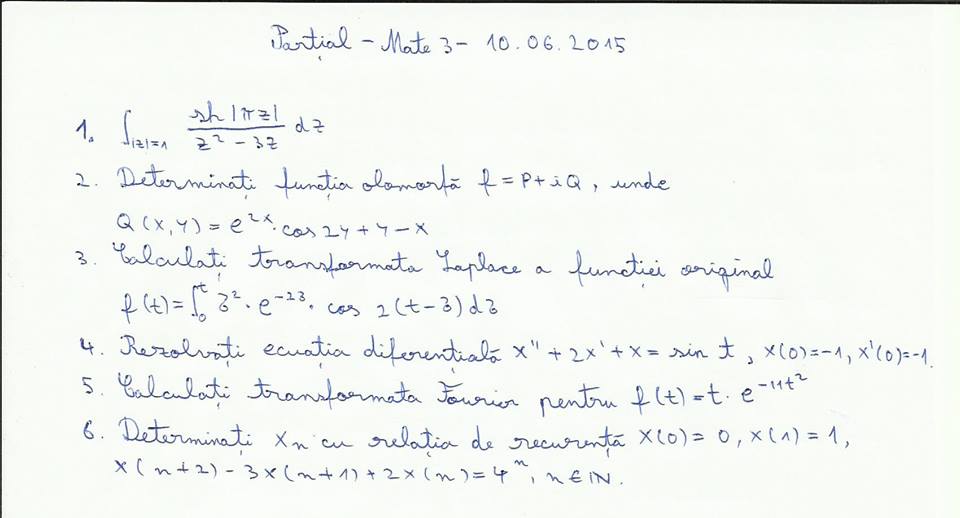 Parțial - Mate 3 - 10.06.2015
1. ∫|z|=1 sh|πz| / (z² - 3z) dz
2. Determinați funcția olomorfă f = P + iQ, unde
Q(x,y) = e^{2x} · cos 2y + y - x
3. Calculați transformata Laplace a funcției original
f(t) = ∫₀ᵗ 3² · e^{-23} · cos 2(t-3) d3
4. Rezolvați ecuația diferențială x'' + 2x' + x = sin t, x(0) = -1, x'(0) = -1.
5. Calculați transformata Fourier pentru f(t) = t · e^{-11t²}
6. Determinați Xn cu relația de recurență x(0) = 0, x(1) = 1,
x(n+2) - 3x(n+1) + 2x(n) = 4ⁿ, n ∈ ℕ.